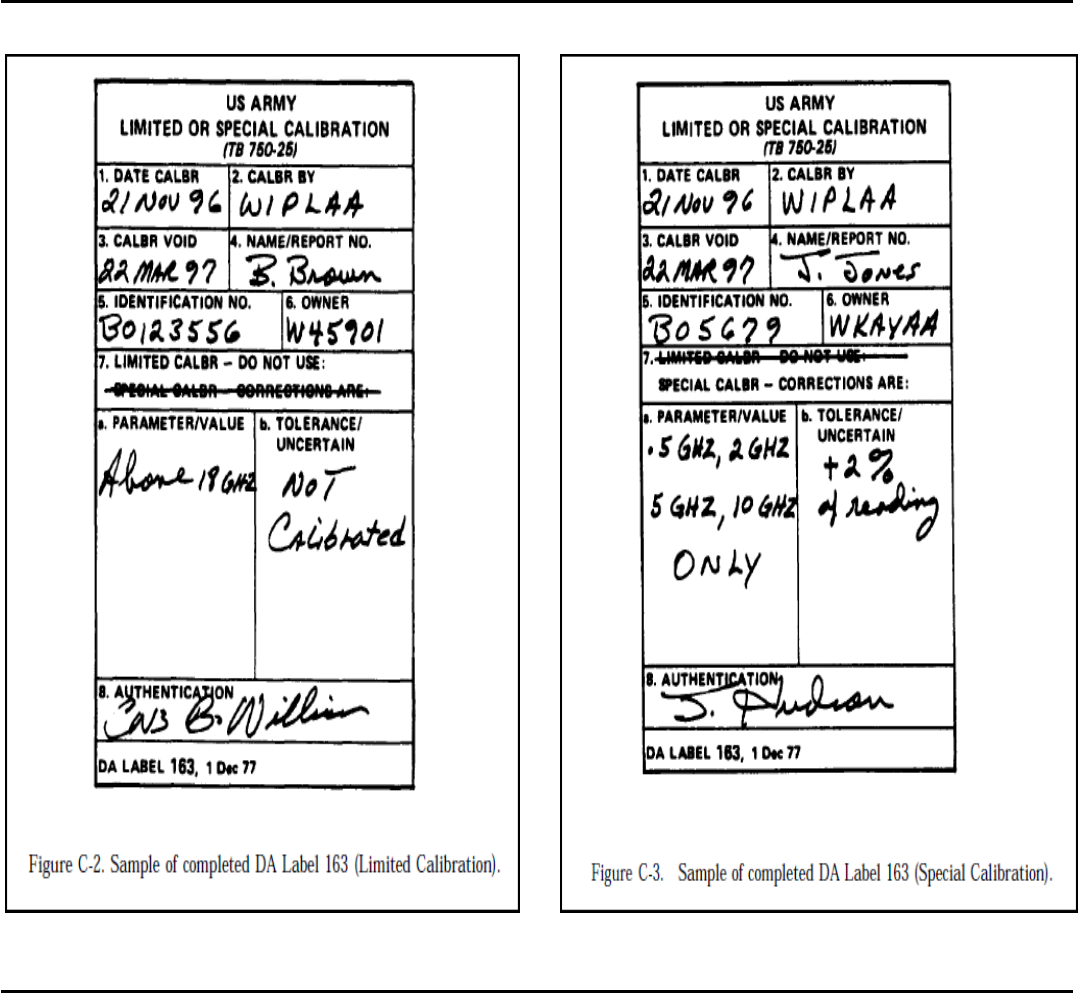 US ARMY
LIMITED OR SPECIAL CALIBRATION
(TB 750-25)
1. DATE CALBR
21 NOV 96
2. CALBR BY
WIPLAA
3. CALBR VOID
22 MAR 97
4. NAME/REPORT NO.
B. Brown
5. IDENTIFICATION NO.
B0123556
6. OWNER
W45901
7. LIMITED CALBR – DO NOT USE:
SPECIAL CALBR – CORRECTIONS ARE:
a. PARAMETER/VALUE
Above 18 GHZ
b. TOLERANCE/
UNCERTAIN
NOT
Calibrated
8. AUTHENTICATION
B. William
DA LABEL 163, 1 Dec 77
Figure C-2. Sample of completed DA Label 163 (Limited Calibration).
US ARMY
LIMITED OR SPECIAL CALIBRATION
(TB 750-25)
1. DATE CALBR
21 NOV 96
2. CALBR BY
WIPLAA
3. CALBR VOID
22 MAR 97
4. NAME/REPORT NO.
J. Jones
5. IDENTIFICATION NO.
B05679
6. OWNER
WKAYAA
7. LIMITED CALBR – DO NOT USE:
SPECIAL CALBR – CORRECTIONS ARE:
a. PARAMETER/VALUE
.5 GHZ, 2 GHZ
5 GHZ, 10 GHZ
ONLY
b. TOLERANCE/
UNCERTAIN
+2%
of reading
8. AUTHENTICATION
J. Hudson
DA LABEL 163, 1 Dec 77
Figure C-3. Sample of completed DA Label 163 (Special Calibration).